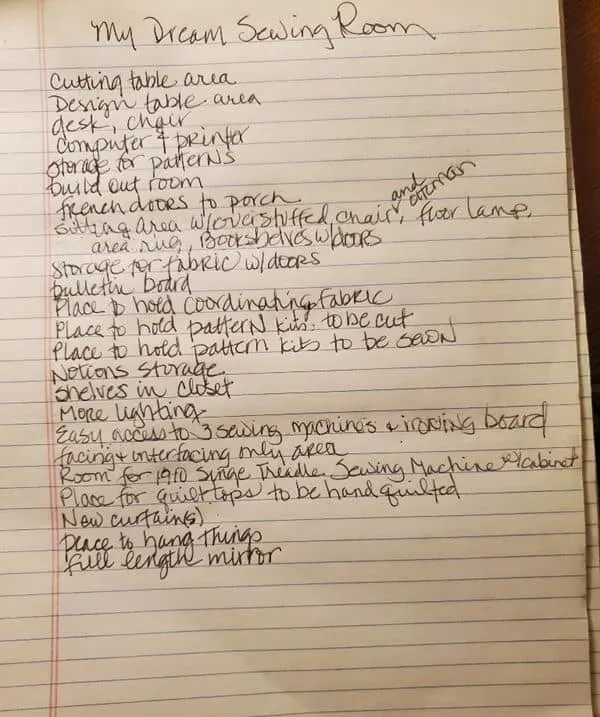 My Dream Sewing Room
Cutting table area
Design table area
desk, chair
Computer & printer
Storage for patterns
build out room
french doors to porch
Sitting area w/overstuffed chair and ottoman, floor lamp,
area rug, Bookshelves w/doors
Storage for fabric w/doors
bulletin board
Place to hold coordinating fabric
Place to hold pattern kits to be cut
Place to hold pattern kits to be sewn
Notions storage
Shelves in closet
More lighting
Easy access to 3 sewing machines & ironing board
facing & interfacing only area
Room for 1910 Singe Treadle Sewing Machine w/cabinet
Place for quilt tops to be hand quilted
New curtain(s)
place to hang things
full length mirror